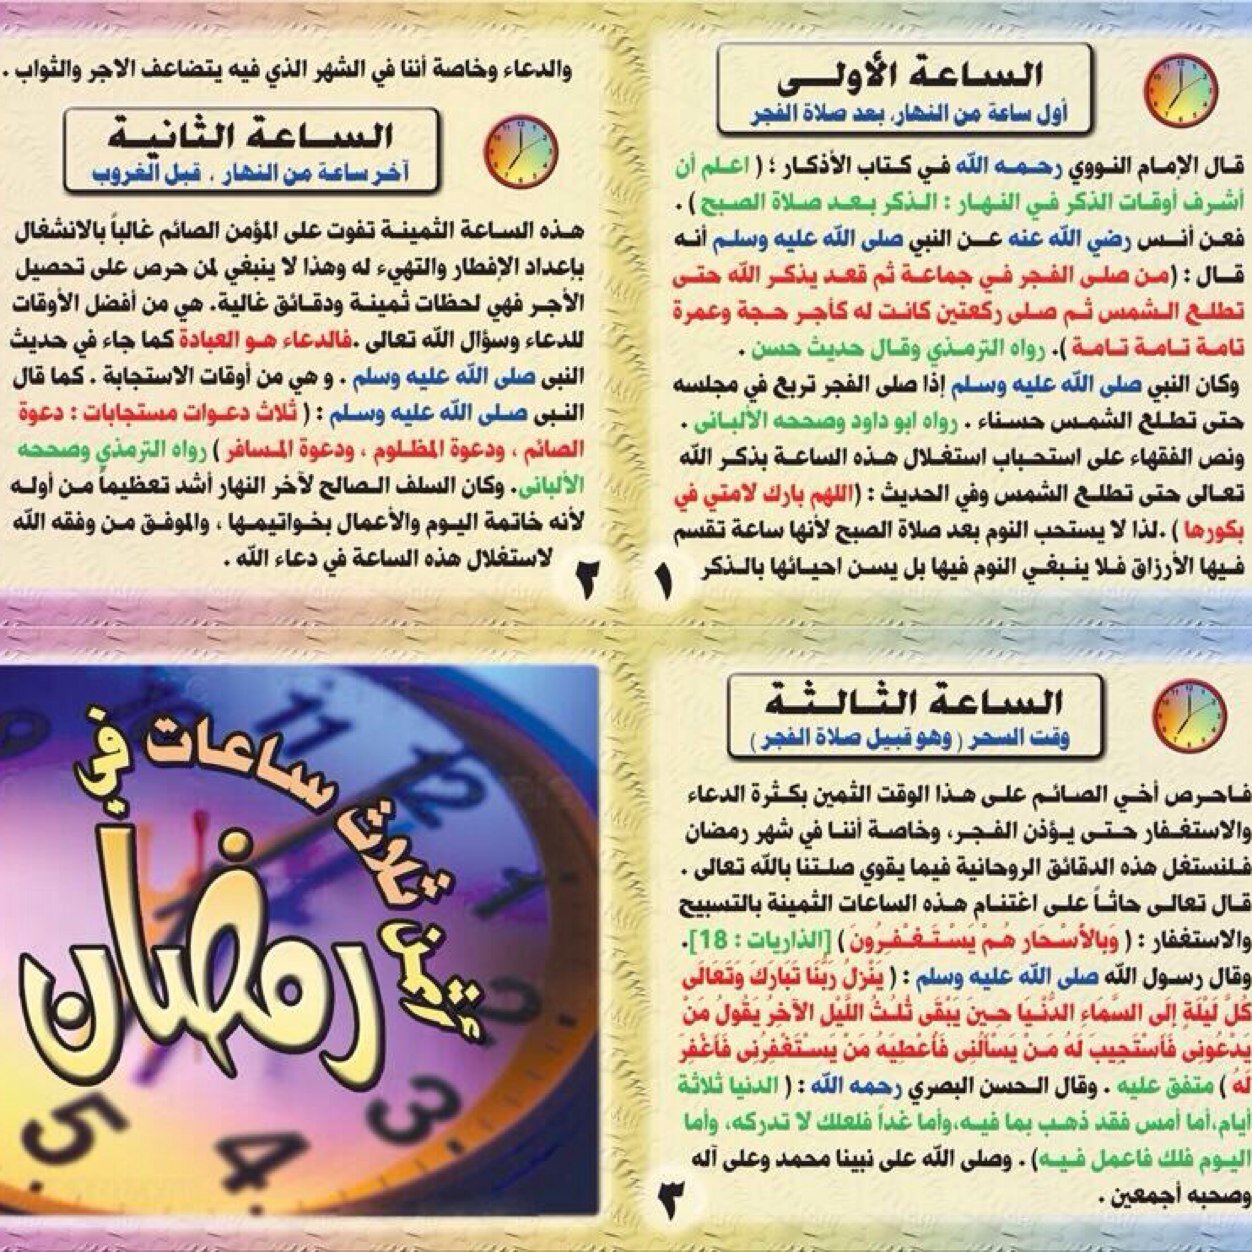 الساعة الأولى
أول ساعة من النهار، بعد صلاة الفجر
قال الإمام النووي رحمه الله في كتاب الأذكار : ( اعلم أن
أشرف أوقات الذكر في النهار : الذكر بعد صلاة الصبح ) .
فعن أنس رضي الله عنه عن النبي صلى الله عليه وسلم أنه
قال : (من صلى الفجر في جماعة ثم قعد يذكر الله حتى
تطلع الشمس ثم صلى ركعتين كانت له كأجر حجة وعمرة
تامة تامة تامة ). رواه الترمذي وقال حديث حسن .
وكان النبي صلى الله عليه وسلم إذا صلى الفجر تربع في مجلسه
حتى تطلع الشمس حسناء . رواه ابو داود وصححه الألبانى .
ونص الفقهاء على استحباب استغلال هذه الساعة بذكر الله
تعالى حتى تطلع الشمس وفي الحديث : (اللهم بارك لامتي في
بكورها ) .لذا لا يستحب النوم بعد صلاة الصبح لأنها ساعة تقسم
فيها الأرزاق فلا ينبغي النوم فيها بل يسن احيائها بالذكر
١
والدعاء وخاصة أننا في الشهر الذي فيه يتضاعف الاجر والثواب .
الساعة الثانية
آخر ساعة من النهار ، قبل الغروب
هذه الساعة الثمينة تفوت على المؤمن الصائم غالباً بالانشغال
بإعداد الإفطار والتهيء له وهذا لا ينبغي لمن حرص على تحصيل
الأجر فهي لحظات ثمينة ودقائق غالية. هي من أفضل الأوقات
للدعاء وسؤال الله تعالى .فالدعاء هو العبادة كما جاء في حديث
النبى صلى الله عليه وسلم . و هي من أوقات الاستجابة . كما قال
النبى صلى الله عليه وسلم : ( ثلاث دعوات مستجابات : دعوة
الصائم ، ودعوة المظلوم ، ودعوة المسافر ) رواه الترمذي وصححه
الألبانى. وكان السلف الصالح لآخر النهار أشد تعظيماً من أوله
لأنه خاتمة اليوم والأعمال بخواتيمها ، والموفق من وفقه الله
لاستغلال هذه الساعة في دعاء الله .
٢
الساعة الثالثة
وقت السحر ( وهو قبيل صلاة الفجر )
فاحرص أخي الصائم على هذا الوقت الثمين بكثرة الدعاء
والاستغفار حتى يؤذن الفجر، وخاصة أننا في شهر رمضان
فلنستغل هذه الدقائق الروحانية فيما يقوي صلتنا بالله تعالى .
قال تعالى حاثاً على اغتنام هذه الساعات الثمينة بالتسبيح
والاستغفار : ( وَبِالأَسْحَارِ هُمْ يَسْتَغْفِرُونَ ) [الذاريات : 18].
وقال رسول الله صلى الله عليه وسلم : ( يَنْزِلُ رَبُّنَا تَبَارَكَ وَتَعَالَى
كُلَّ لَيْلَةٍ إلَى السَّمَاءِ الدُّنْيَا حِينَ يَبْقَى ثُلُثُ اللَّيْلِ الآخِرُ يَقُولُ مَنْ
يَدْعُونِى فَأَسْتَجِيبَ لَهُ مَنْ يَسْأَلُنِى فَأُعْطِيَهُ مَنْ يَسْتَغْفِرُنِى فَأَغْفِرَ
لَهُ ) متفق عليه . وقال الحسن البصري رحمه الله : ( الدنيا ثلاثة
أيام،أما أمس فقد ذهب بما فيه،وأما غداً فلعلك لا تدركه، وأما
اليوم فلك فاعمل فيه) . وصلى الله على نبينا محمد وعلى آله
وصحبه أجمعين .
٣
ثمن ثلاث ساعات في
رمضان
11
12
1
2
3
4
5